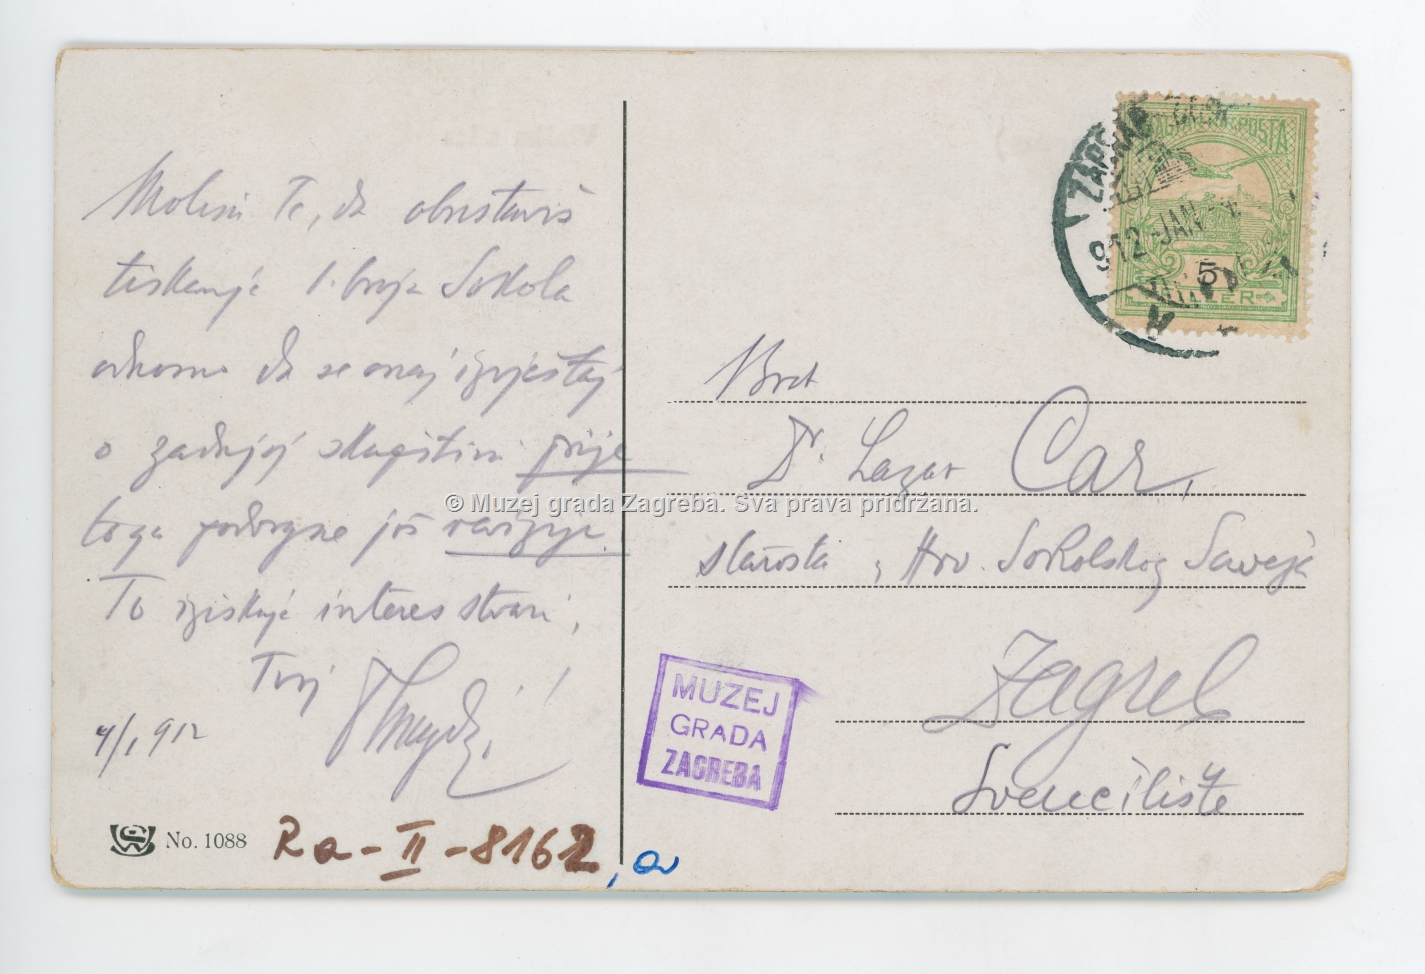 Molim Te, da obustaviš
tiskanje 1. broja Sokola
odnosno da se onaj izvještaj
o zadnjoj skupštini prije
toga podvrgne još reviziji.
To iziskuje interes stvari,
Tvoj
4/1 912
No. 1088
Ra-II-8162,a
MAGYAR KIR. POSTA
5
FILLÉR
ZÁGRÁB
912 JAN
Brat
Dr. Lazar Car,
starosta Hrv. Sokolskog Saveza
Zagreb
Sveučilište
MUZEJ
GRADA
ZAGREBA
© Muzej grada Zagreba. Sva prava pridržana.